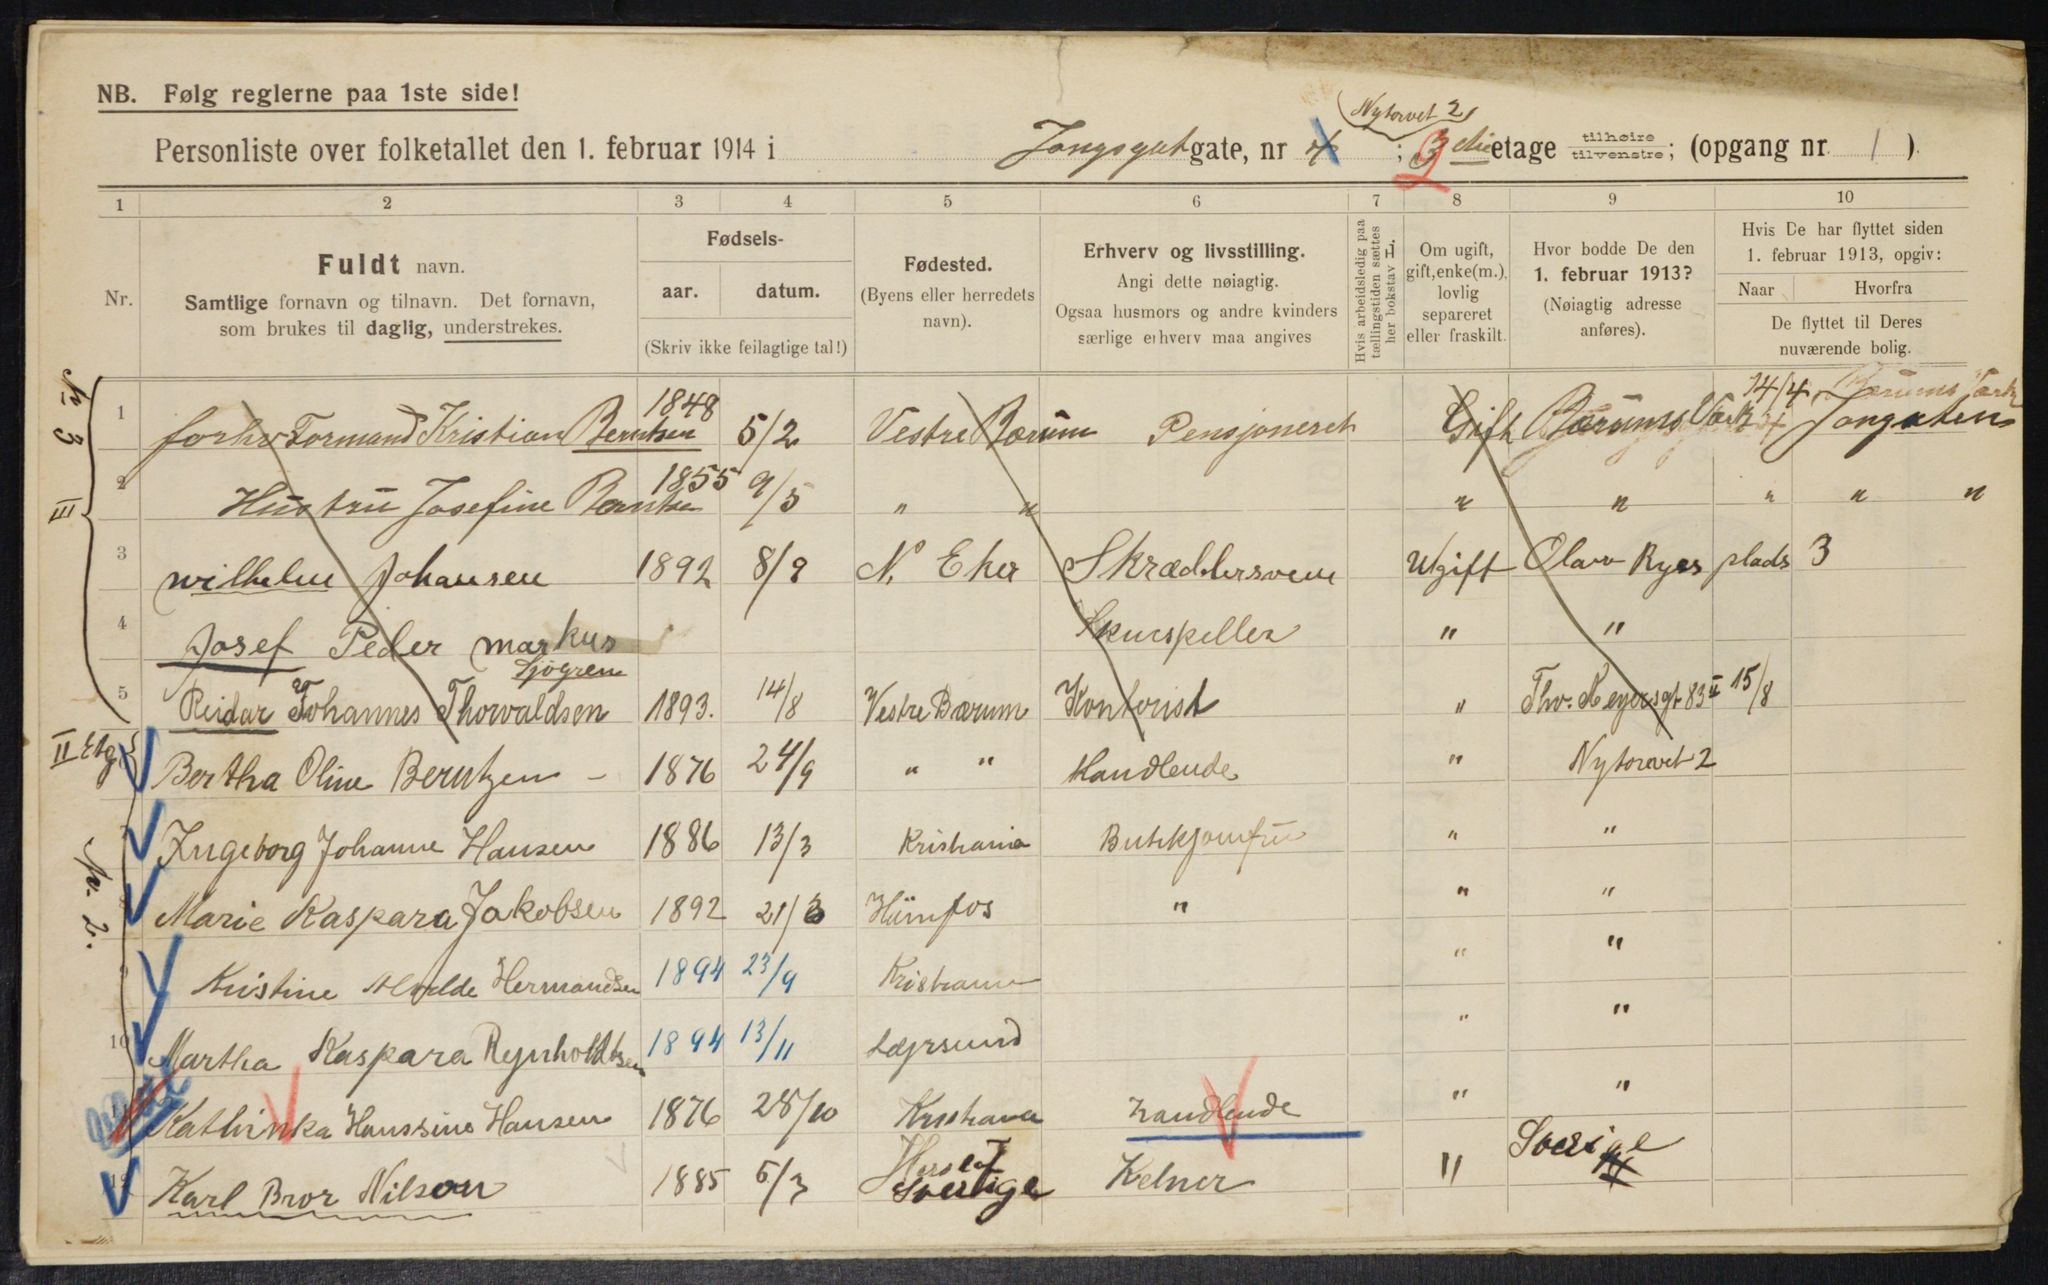 NB. Følg reglerne paa 1ste side!
Nytorvet 2
Personliste over folketallet den 1. februar 1914 i Torvgat gate, nr 4; 3die etage tilhøire tilvenstre; (opgang nr 1).
1 2 3 4 5 6 7 8 9 10
Nr.
Fuldt navn.
Samtlige fornavn og tilnavn. Det fornavn,
som brukes til daglig, understrekes.
Fødsels-
aar. datum.
(Skriv ikke feilagtige tal!)
Fødested.
(Byens eller herredets
navn).
Erhverv og livsstilling.
Angi dette nøiagtig.
Ogsaa husmors og andre kvinders
særlige erhverv maa angives
Hvis arbeidsledig paa
tællingstiden sættes
her bokstav L.
Om ugift,
gift, enke(m.),
lovlig
separeret
eller fraskilt.
Hvor bodde De den
1. februar 1913?
(Nøiagtig adresse
anføres).
Hvis De har flyttet siden
1. februar 1913, opgiv:
Naar Hvorfra
De flyttet til Deres
nuværende bolig.
N 3 III
1 forhv Formand Kristian Berntsen 1848 5/2 Vestre Bærum Pensjoneret Gift Bærums Værk 14/4 Bærums Værk
2 Hustru Josefine Berntsen 1855 9/5 " " " " " " "
3 Wilhelm Johansen 1892 8/9 N. Eker Skræddersvend Ugift Olav Ryes plads 3
4 Josef Peder Markus Sjögren Skuespiller " "
5 Reidar Johannes Thorvaldsen 1893. 14/8 Vestre Bærum Kontorist " Thv. Meyersgt 83 II 15/8
II Etg
Bertha Oline Berntzen - 1876 24/9 " " Handlende " Nytorvet 2
No. 2.
7 Ingeborg Johanne Hansen 1886 13/3 Kristiania Butikjomfru " "
8 Marie Kaspara Jakobsen 1892 21/3 " " "
9 Kristine Hermandsen 1894 23/9 Kristiania " "
10 Martha Kaspara Rynholdtsen 1894 13/11 " "
11 Kathinka Hanssine Hansen 1876 28/10 Kristiania Handlende " "
12 Karl Bror Nilson 1885 5/3 Sverige Kelner " Sverige